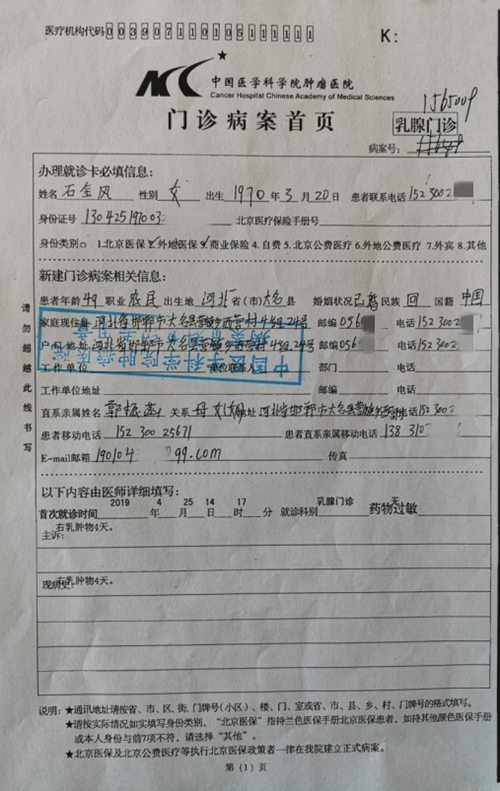 医疗机构代码 0039071101051111111
K:
中国医学科学院肿瘤医院
Cancer Hospital Chinese Academy of Medical Sciences
1565009
门诊病案首页
乳腺门诊
病案号:
办理就诊卡必填信息:
姓名 石金风 性别 女 出生 1970年3月20日 患者联系电话 152 3002
身份证号 130425197003 北京医疗保险手册号
身份类别□ 1.北京医保 2.外地医保 3.商业保险 4.自费 5.北京公费医疗 6.外地公费医疗 7.外宾 8.其他
新建门诊病案相关信息:
患者年龄 49 职业 农民 出生地 河北省(市)大名县 婚姻状况 已婚 民族 回 国籍 中国
家庭现住址 河北省邯郸市大名县营镇乡西营村 24号 邮编 056 电话 152 3002
户口地址 河北省邯郸市大名县营镇乡西营村 24号 邮编 056 电话 152 3002
中国医学科学院肿瘤医院
工作单位 单位联系人 部门 电话
工作单位地址 邮编 电话
直系亲属姓名 郭 关系 母女 地址 河北省邯郸市大名县营镇 电话 152 3002
患者移动电话 152 300 25671 患者直系亲属移动电话 138 310
E-mail邮箱 190104 99.com 传真
以下内容由医师详细填写:
首次就诊时间 2019年4月25日14时17分 就诊科别 乳腺门诊 药物过敏 无
主诉: 右乳肿物4天。
现病史: 右乳肿物4天。
请勿超越此线书写
说明: ★通讯地址请按省、市、区、街、门牌号(小区)、楼、门、室或省、市、县、乡、村、门牌号的格式填写。
★请按实际情况如实填写身份类别, “北京医保”指持兰色医保手册北京医保患者, 如持其他颜色医保手册
或本人身份与前7项不符, 请选择“其他”。
★北京医保及北京公费医疗等执行北京医保政策者一律在我院建立正式病案。
第(1)页